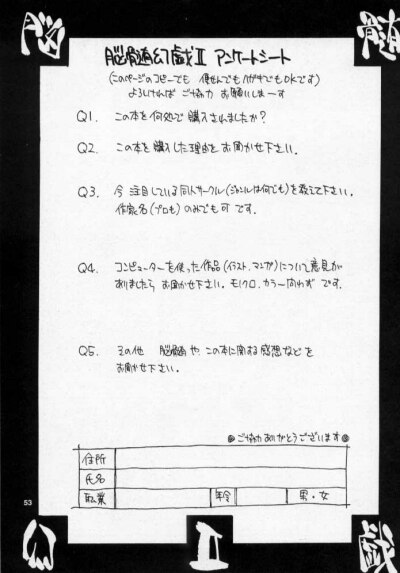 脳
髄
脳髄幻戯Ⅱ アンケートシート
(このページのコピーでも 便せんでもハガキでもOKです)
よろしければ ご協力 お願いしま〜す
Q1. この本を何処で購入されましたか?
Q2. この本を購入した理由をお聞かせ下さい。
Q3. 今注目している同人サークル(ジャンルは何でも)を教えて下さい。
作家名(プロも)のみでも可です。
Q4. コンピューターを使った作品(イラスト、マンガ)について意見が
ありましたらお聞かせ下さい。モノクロ、カラー問わずです。
Q5. その他 脳髄や、この本に関する感想などを
お聞かせ下さい。
◎ご協力ありがとうございます◎
住所
氏名
職業 年令 男・女
53
幻
Ⅱ
戯